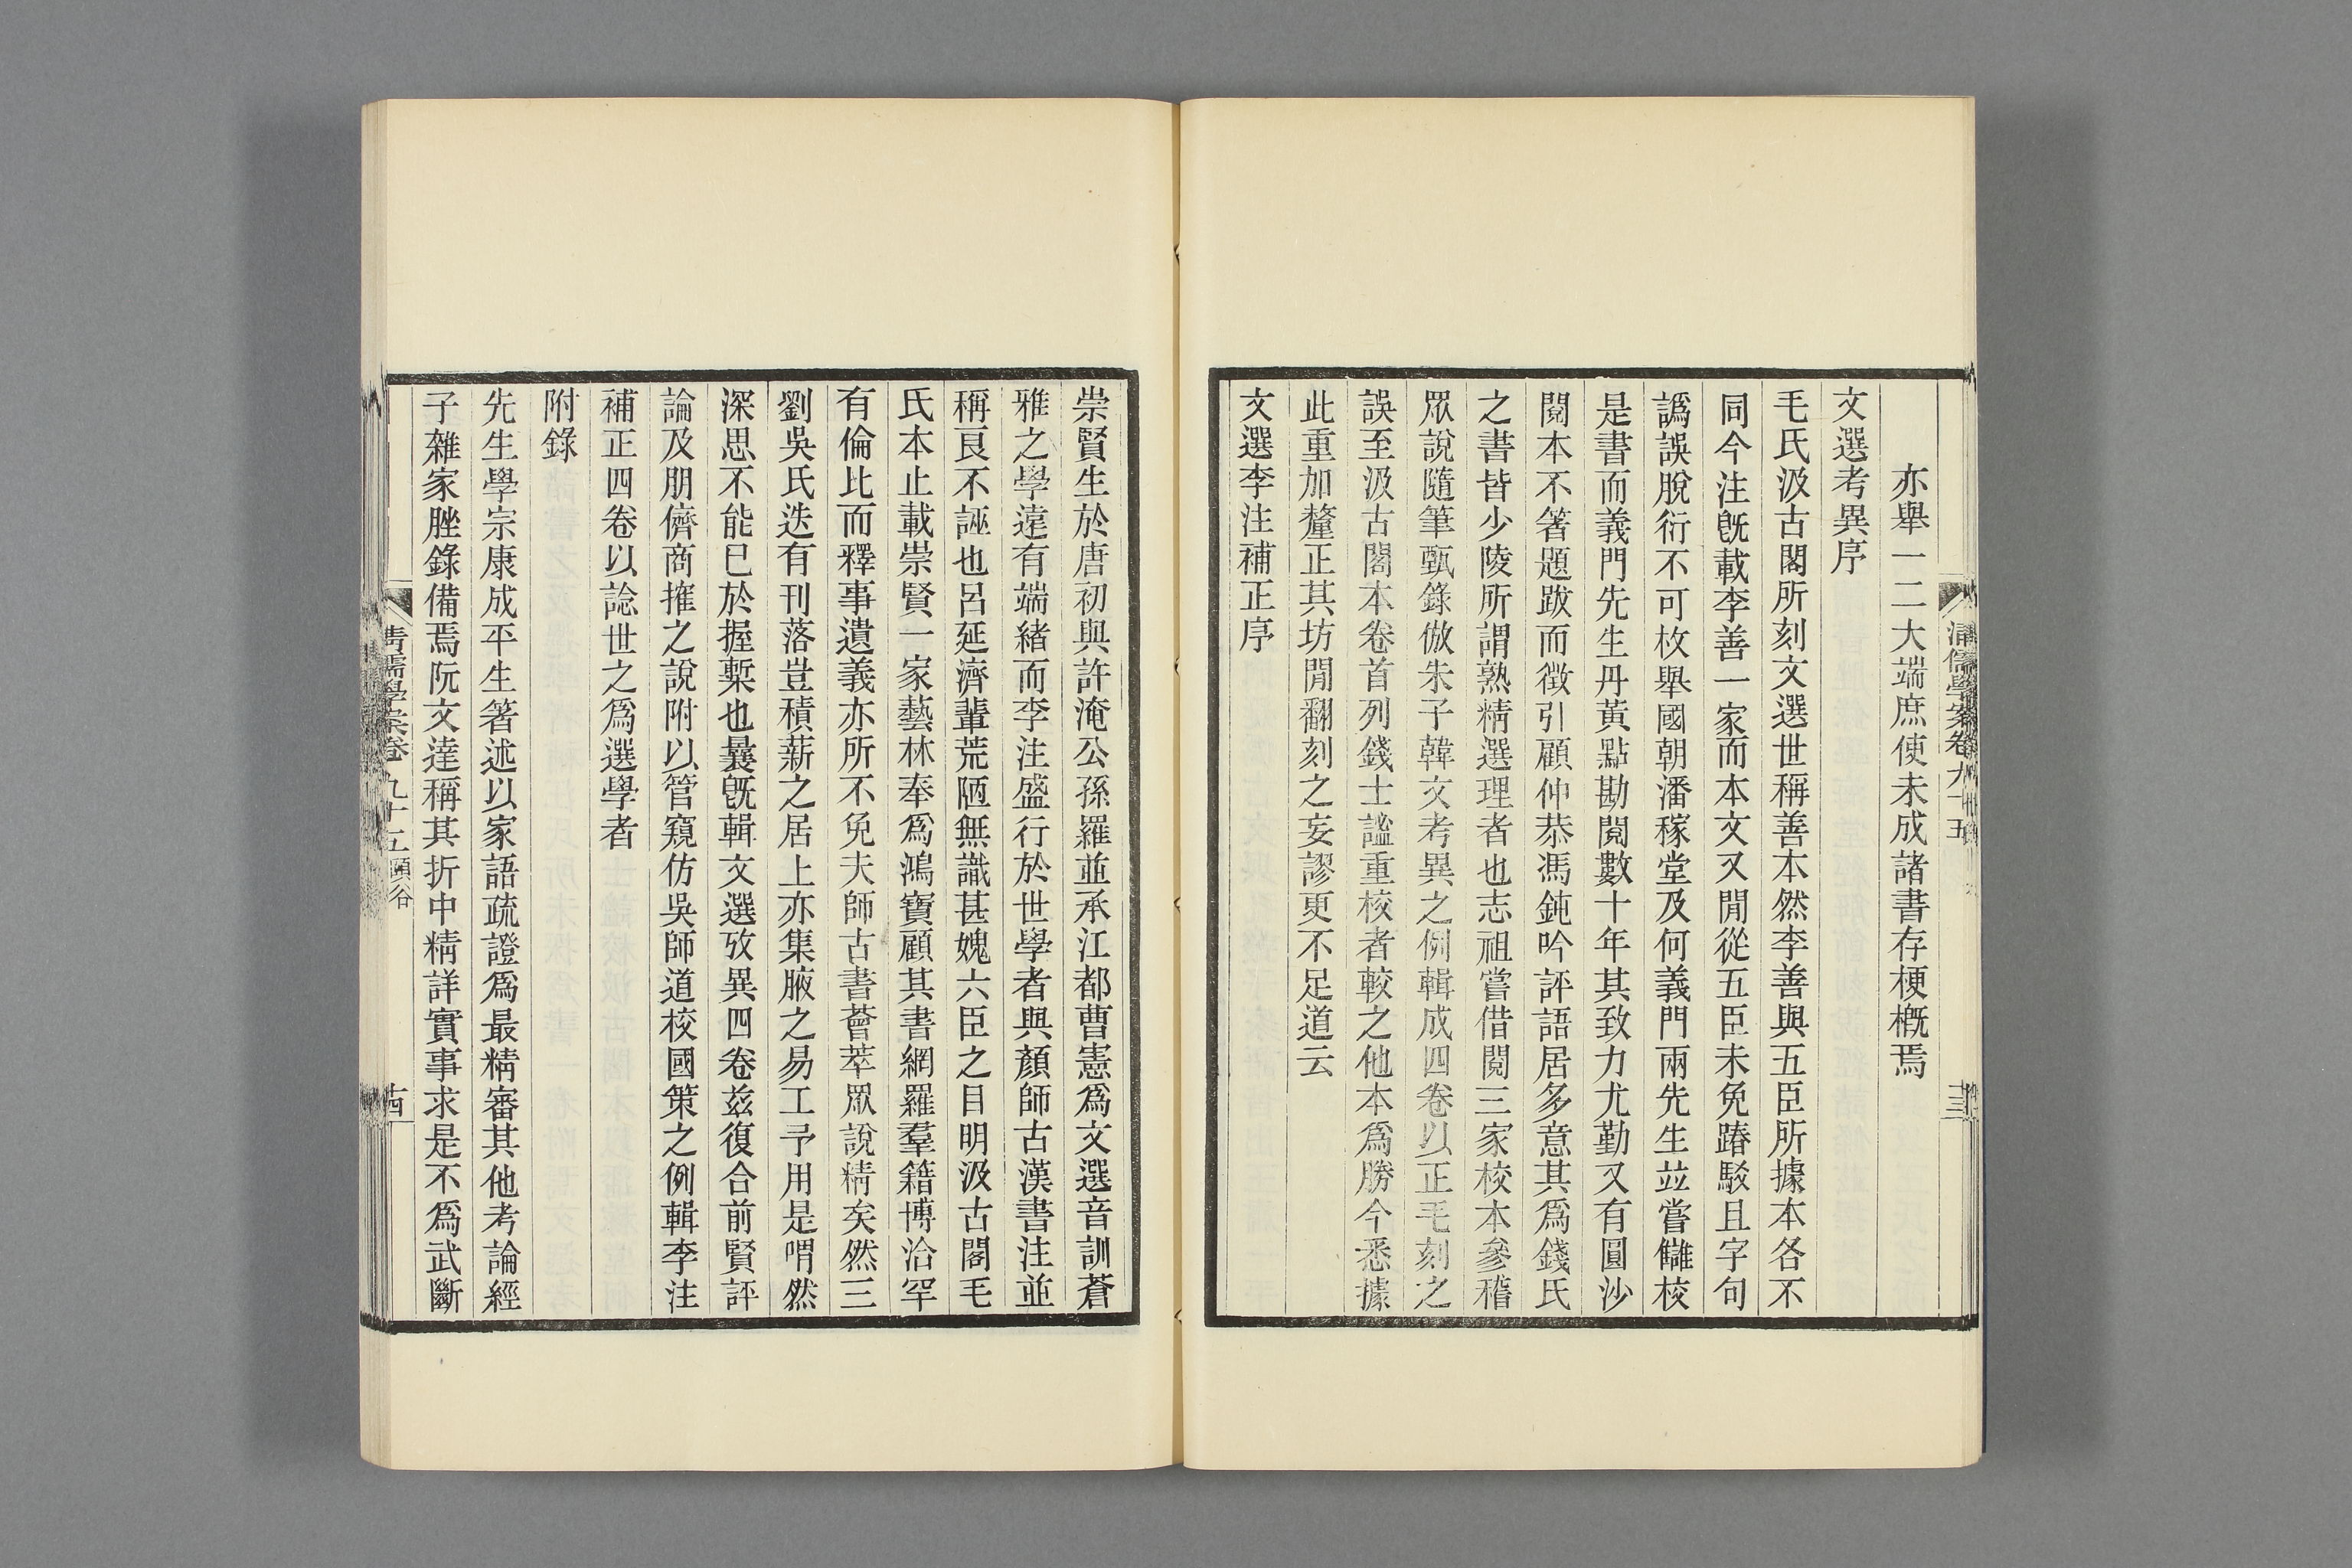 亦舉一二大端庶使未成諸書存梗槪焉
文選考異序
毛氏汲古閣所刻文選世稱善本然李善與五臣所據本各不
同今注旣載李善一家而本文又閒從五臣未免踳駁且字句
譌誤脫衍不可枚舉國朝潘稼堂及何義門兩先生竝嘗讎校
是書而義門先生丹黃點勘閱數十年其致力尤勤又有圓沙
閱本不著題跋而徵引顧仲恭馮鈍吟評語居多意其爲錢氏
之書皆少陵所謂熟精選理者也志祖嘗借閱三家校本參稽
眾說隨筆甄錄倣朱子韓文考異之例輯成四卷以正毛刻之
誤至汲古閣本卷首列錢士謐重校者較之他本爲勝今悉據
此重加釐正其坊閒翻刻之妄謬更不足道云
文選李注補正序
崇賢生於唐初與許淹公孫羅並承江都曹憲爲文選音訓蒼
雅之學遠有端緒而李注盛行於世學者與顏師古漢書注並
稱良不誣也呂延濟輩荒陋無識甚媿六臣之目明汲古閣毛
氏本止載崇賢一家藝林奉爲鴻寶顧其書網羅羣籍博洽罕
有倫比而釋事遺義亦所不免夫師古書薈萃眾說精矣然三
劉吳氏迭有刊落豈積薪之居上亦集腋之易工予用是喟然
深思不能已於握槧也曩旣輯文選攷異四卷茲復合前賢評
論及朋儕商搉之說附以管窺仿吳師道校國策之例輯李注
補正四卷以諗世之爲選學者
附錄
先生學宗康成平生箸述以家語疏證爲最精審其他考論經
子雜家脞錄備焉阮文達稱其折中精詳實事求是不爲武斷
清儒學案卷九十五 頤谷
十四